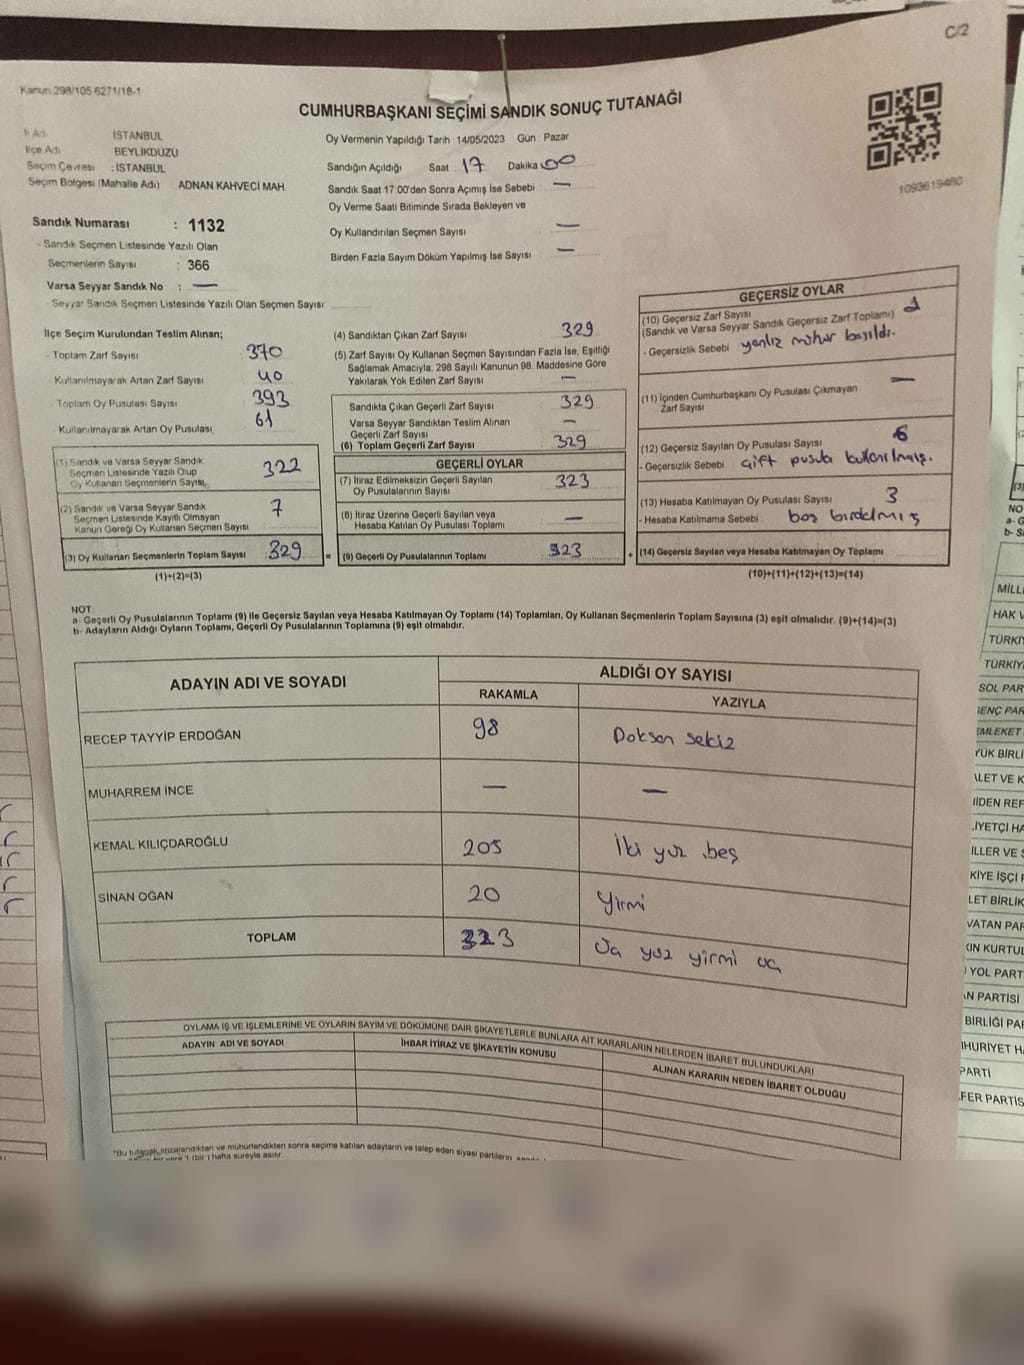 C/2
Kanun:298/105 6271/18-1
CUMHURBAŞKANI SEÇİMİ SANDIK SONUÇ TUTANAĞI
İl Adı İSTANBUL
İlçe Adı BEYLİKDÜZÜ
Seçim Çevresi :İSTANBUL
Seçim Bölgesi (Mahalle Adı) ADNAN KAHVECİ MAH.
Oy Vermenin Yapıldığı Tarih 14/05/2023 Gün : Pazar
Sandığın Açıldığı Saat 17 Dakika 00
Sandık Saat 17:00'den Sonra Açımış İse Sebebi : —
Oy Verme Saati Bitiminde Sırada Bekleyen ve
Oy Kullandırılan Seçmen Sayısı —
Birden Fazla Sayım Döküm Yapılmış İse Sayısı —
1093619480
Sandık Numarası : 1132
- Sandık Seçmen Listesinde Yazılı Olan
Seçmenlerin Sayısı : 366
Varsa Seyyar Sandık No : —
- Seyyar Sandık Seçmen Listesinde Yazılı Olan Seçmen Sayısı:
İlçe Seçim Kurulundan Teslim Alınan;
- Toplam Zarf Sayısı 370
- Kullanılmayarak Artan Zarf Sayısı 40
- Toplam Oy Pusulası Sayısı 393
- Kullanılmayarak Artan Oy Pusulası 61
(1) Sandık ve Varsa Seyyar Sandık
Seçmen Listesinde Yazılı Olup
Oy Kullanan Seçmenlerin Sayısı 322
(2) Sandık ve Varsa Seyyar Sandık
Seçmen Listesinde Kayıtlı Olmayan
Kanun Gereği Oy Kullanan Seçmen Sayısı 7
(3) Oy Kullanan Seçmenlerin Toplam Sayısı 329 =
(1)+(2)=(3)
(4) Sandıktan Çıkan Zarf Sayısı 329
(5) Zarf Sayısı Oy Kullanan Seçmen Sayısından Fazla İse, Eşitliği
Sağlamak Amacıyla, 298 Sayılı Kanunun 98. Maddesine Göre
Yakılarak Yok Edilen Zarf Sayısı —
Sandıkta Çıkan Geçerli Zarf Sayısı 329
Varsa Seyyar Sandıktan Teslim Alınan
Geçerli Zarf Sayısı —
(6) Toplam Geçerli Zarf Sayısı 329
GEÇERLİ OYLAR
(7) İtiraz Edilmeksizin Geçerli Sayılan
Oy Pusulalarının Sayısı 323
(8) İtiraz Üzerine Geçerli Sayılan veya
Hesaba Katılan Oy Pusulası Toplamı —
(9) Geçerli Oy Pusulalarının Toplamı 323 +
GEÇERSİZ OYLAR
(10) Geçersiz Zarf Sayısı
(Sandık ve Varsa Seyyar Sandık Geçersiz Zarf Toplamı)
- Geçersizlik Sebebi yanlız mühür basıldı.
(11) İçinden Cumhurbaşkanı Oy Pusulası Çıkmayan
Zarf Sayısı —
(12) Geçersiz Sayılan Oy Pusulası Sayısı 6
- Geçersizlik Sebebi çift pusula kullanılmış.
(13) Hesaba Katılmayan Oy Pusulası Sayısı 3
- Hesaba Katılmama Sebebi : boş
(14) Geçersiz Sayılan veya Hesaba Katılmayan Oy Toplamı
(10)+(11)+(12)+(13)=(14)
NOT:
a- Geçerli Oy Pusulalarının Toplamı (9) ile Geçersiz Sayılan veya Hesaba Katılmayan Oy Toplamı (14) Toplamları, Oy Kullanan Seçmenlerin Toplam Sayısına (3) eşit olmalıdır. (9)+(14)=(3)
b- Adayların Aldığı Oyların Toplamı, Geçerli Oy Pusulalarının Toplamına (9) eşit olmalıdır.
ADAYIN ADI VE SOYADI
ALDIĞI OY SAYISI
RAKAMLA YAZIYLA
RECEP TAYYİP ERDOĞAN 98 Doksan sekiz
MUHARREM İNCE — —
KEMAL KILIÇDAROĞLU 205 İki yüz beş
SİNAN OĞAN 20 Yirmi
TOPLAM 323 Üç yüz yirmi üç
OYLAMA İŞ VE İŞLEMLERİNE VE OYLARIN SAYIM VE DÖKÜMÜNE DAİR ŞİKAYETLERLE BUNLARA AİT KARARLARIN NELERDEN İBARET BULUNDUKLARI
ADAYIN ADI VE SOYADI
İHBAR İTİRAZ VE ŞİKAYETİN KONUSU
ALINAN KARARIN NEDEN İBARET OLDUĞU
imzalandıktan ve mühürlendikten sonra seçime katılan adayların ve talep eden siyasi partilerin
1 (bir) hafta süreyle asılır.
NO
a- G
b- S
MİLL
HAK V
TÜRKİY
TÜRKİYE
SOL PAR
GENÇ PAR
EMLEKET
YÜK BİRLİ
ALET VE K
NİDEN REF
LİYETÇİ HA
İLLER VE S
KİYE İŞÇİ P
LET BİRLİK
VATAN PAR
KIN KURTUL
YOL PART
AN PARTİSİ
BİRLİĞİ PAR
HURİYET HA
PARTİ
FER PARTİS